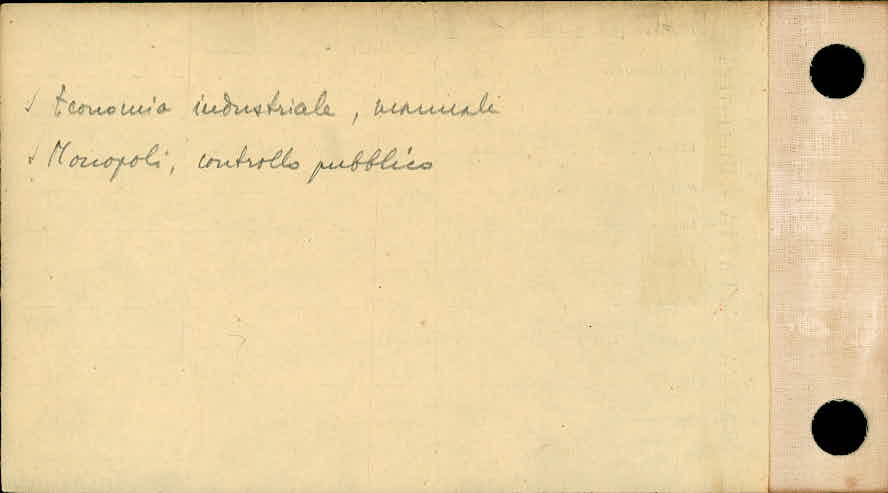 √ Economia industriale, manuali
√ Monopoli, controllo pubblico